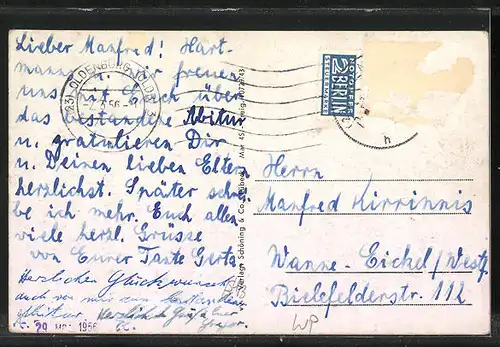 Lieber Manfred! Hart-
manns u. wir freuen
uns mit Euch über
das bestandene Abitur
u. gratulieren Dir
u. Deinen lieben Eltern
herzlichst. Später schrei-
be ich mehr. Euch allen
viele herzl. Grüsse
von Eurer Tante Gerta.
Herzlichen Glückwunsch
auch von mir zum bestandenen
Abitur. Herzliche Grüße Euer
(23) OLDENBURG (OLDB)
56
Verlag: Schöning & Co., Lübeck
NOTOPFER
2 BERLIN
STEUERMARKE
h
Herrn
Manfred Kirrinnis
Wanne-Eickel/Westf.
Bielefelderstr. 112
WP
29 1956